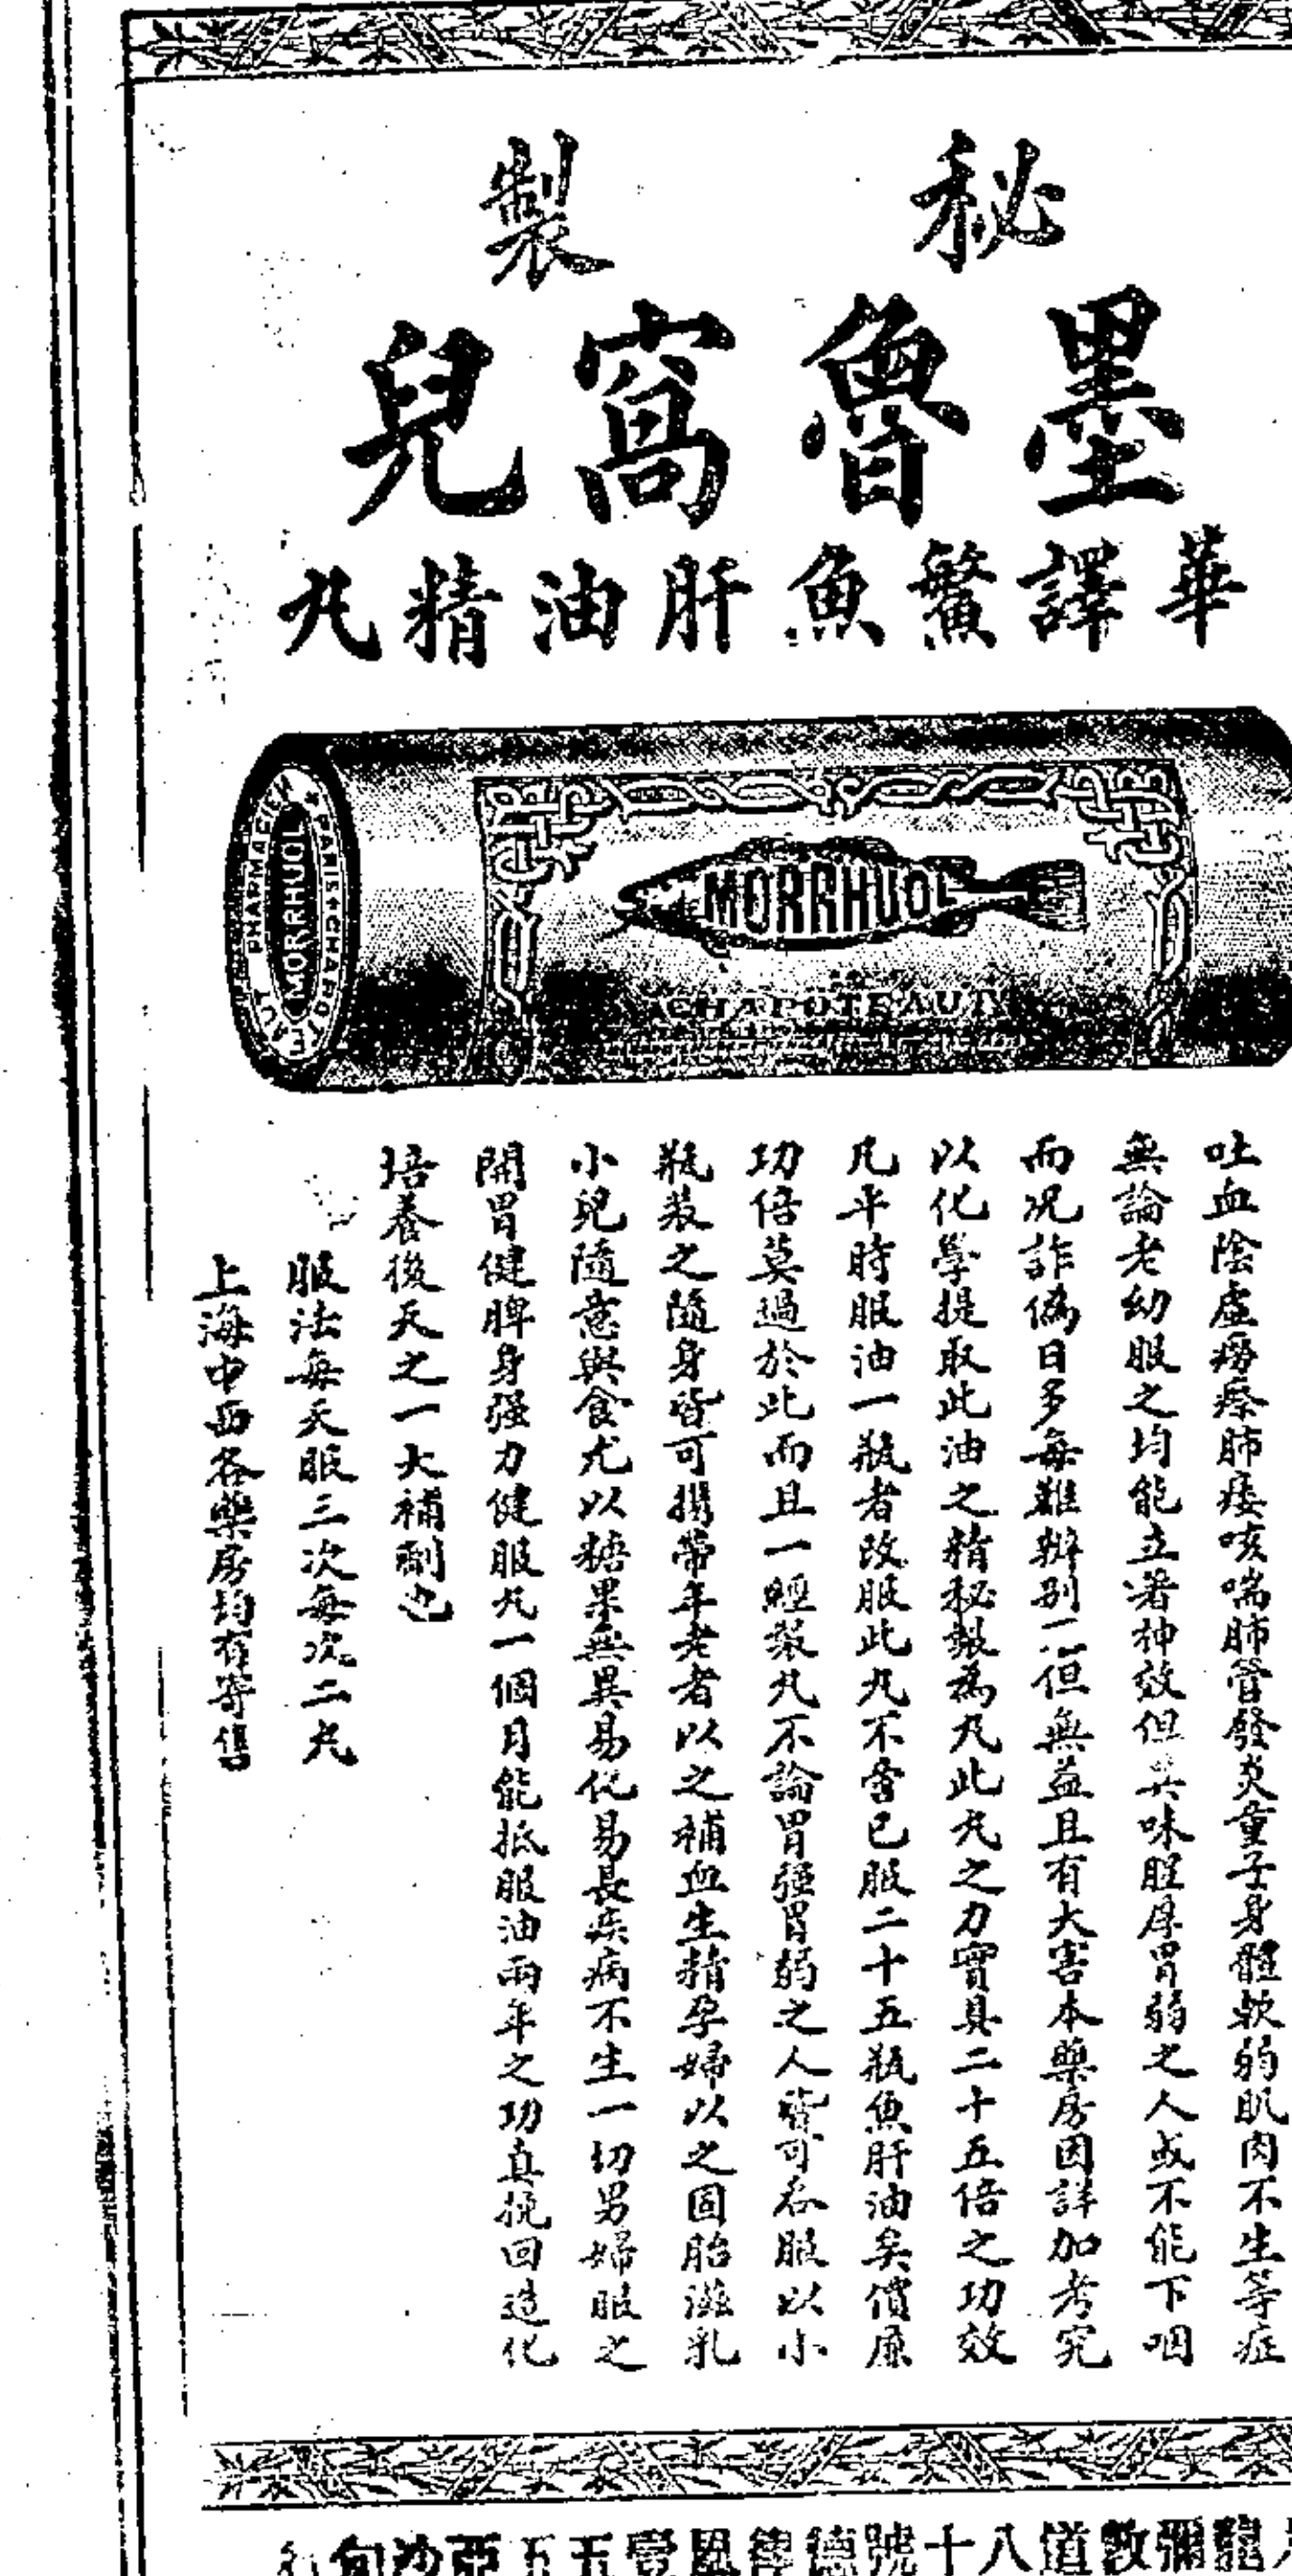 秘製
墨魯窩兒
華譯鱉魚肝油精丸
PHARMACIEN * PARIS * CHAPOTEAUT
MORRHUOL
MORRHUOL
CHAPOTEAUT
吐血陰虛癆瘵肺痿咳喘肺管發炎童子身體軟弱肌肉不生等症
無論老幼服之均能立著神效但其味腥厚胃弱之人或不能下咽
而况詐偽日多每難辦别不但無益且有大害本藥房因詳加考究
以化學提取此油之精秘製為丸此丸之力實具二十五倍之功效
凡平時服油一瓶者改服此丸不啻已服二十五瓶魚肝油矣價廉
功倍莫過於此而且一經製丸不論胃强胃弱之人皆可吞服以小
瓶裝之隨身皆可攜帶年老者以之補血生精孕婦以之固胎滋乳
小兒隨意與食尤以糖果無異易化易長疾病不生一切男婦服之
開胃健脾身强力健服丸一個月能抵服油兩年之功真挽回造化
培養後天之一大補劑也
服法每天服三次每次二丸
上海中西各藥房均有寄售
龍彌敦道八十號德律風壹五五亞沙甸